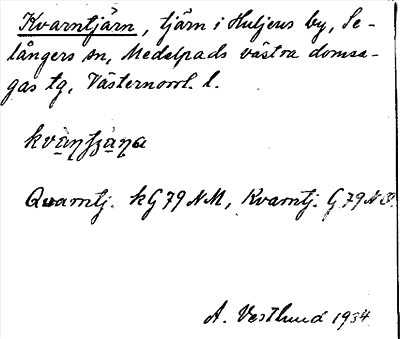 Kvarntjärn, tjärn i Huljens by, Se-
långers sn, Medelpads västra domsa-
gas tg, Västernorrl. l.
Quarntj. kG 79 NM, Kvarntj. G 79 NO.
A. Vestlund 1934